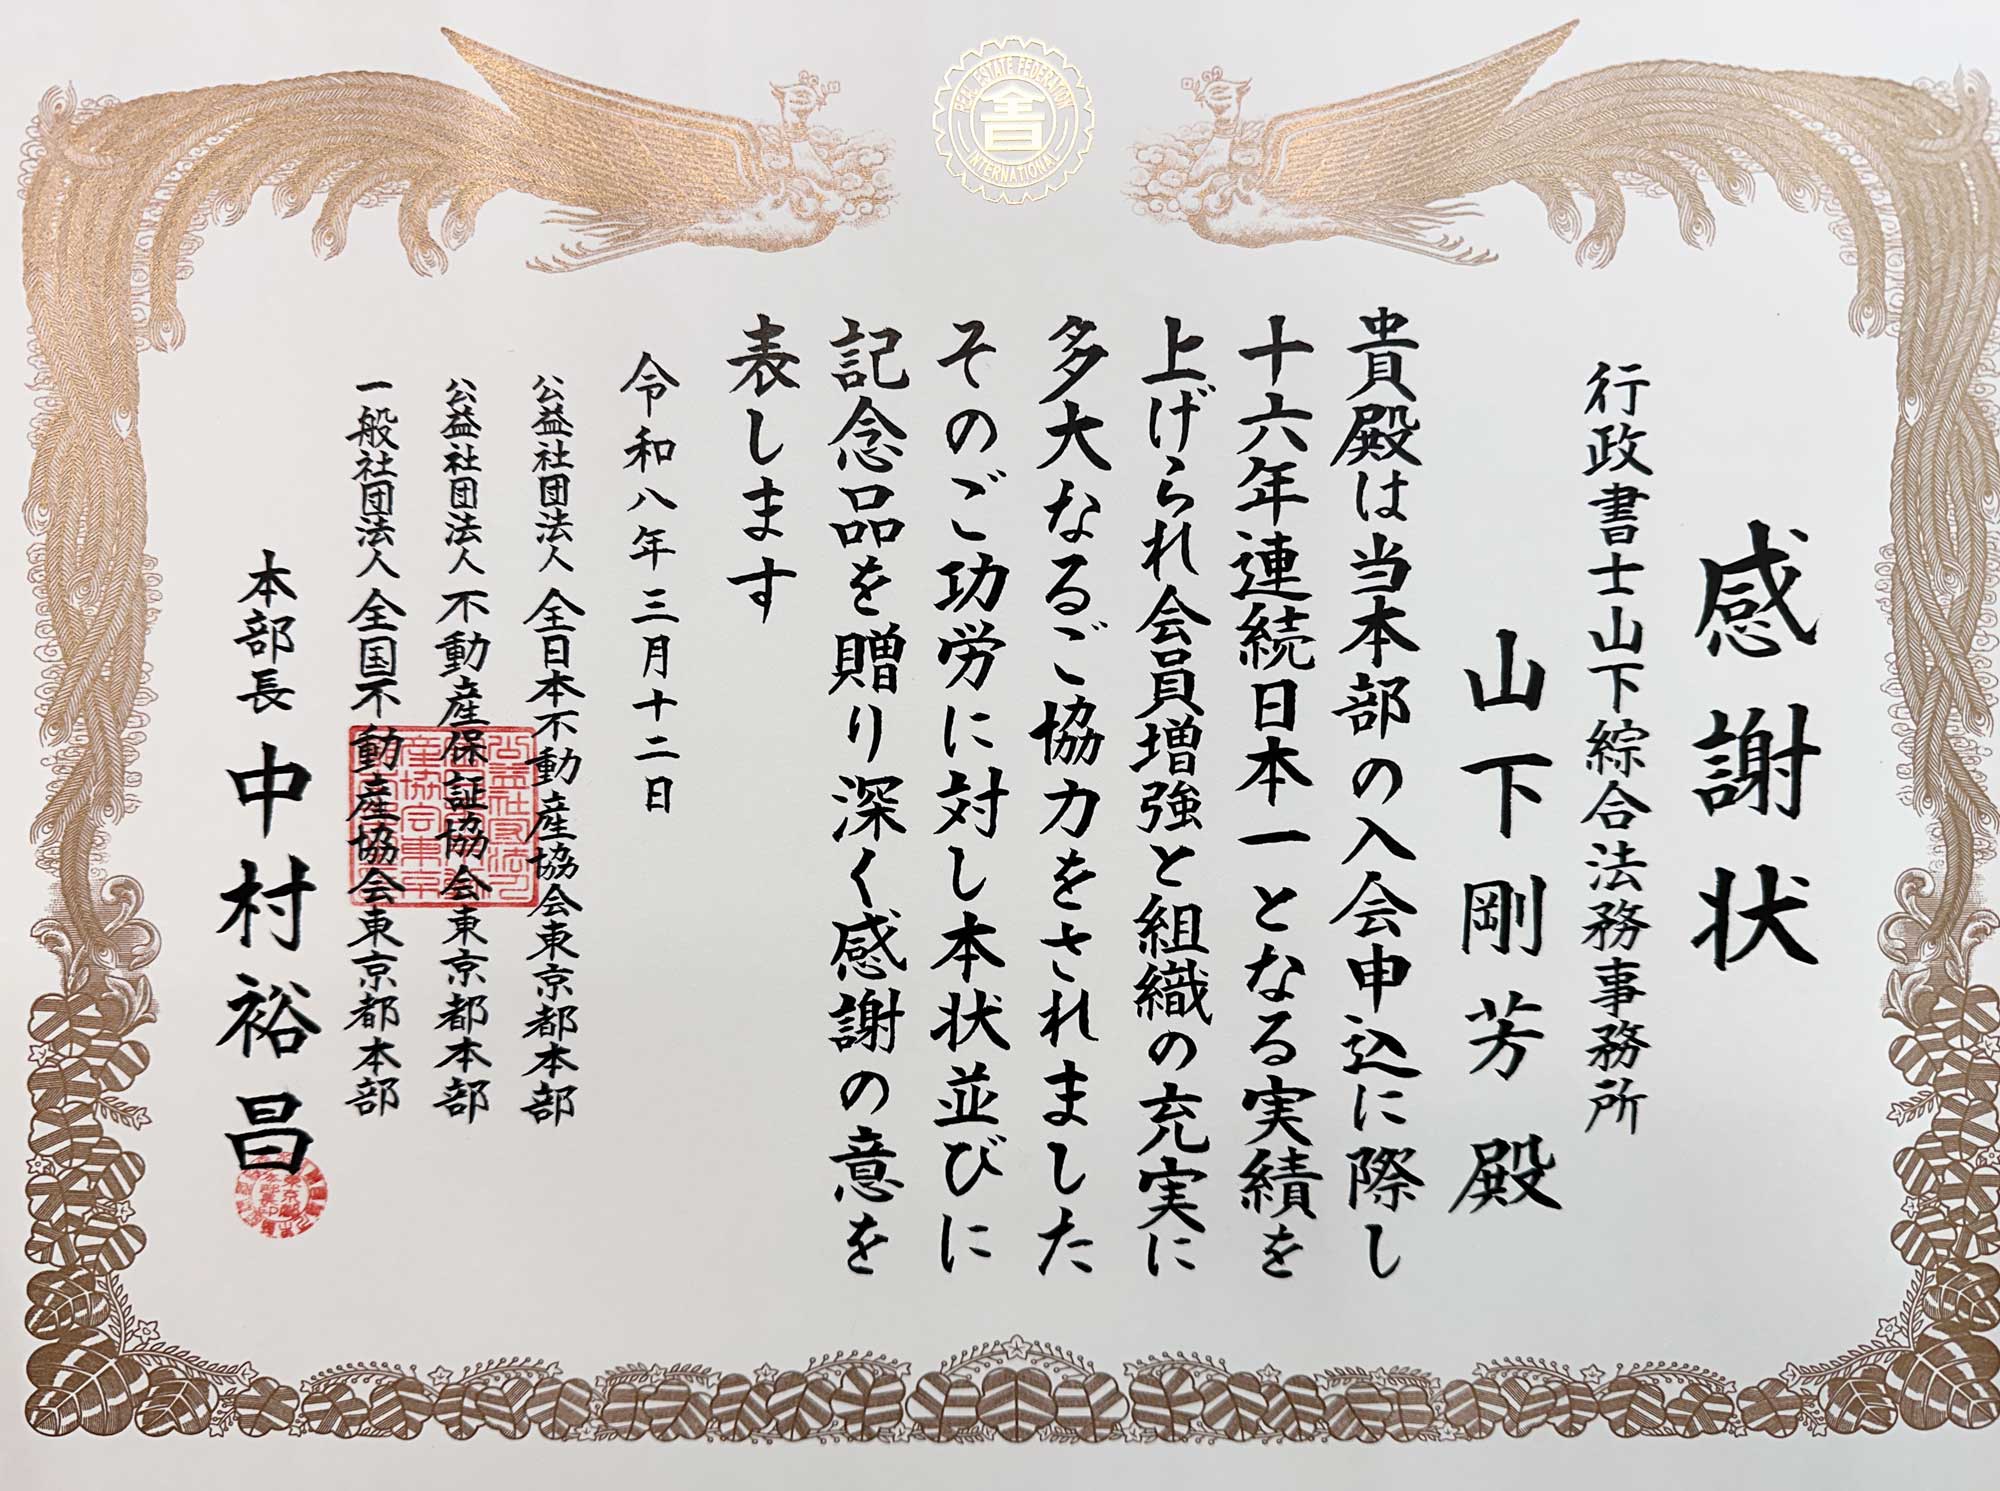 REAL ESTATE FEDERATION
INTERNATIONAL
感謝状
行政書士山下綜合法務事務所
山下剛芳殿
貴殿は当本部の入会申込に際し
十六年連続日本一となる実績を
上げられ会員増強と組織の充実に
多大なるご協力をされました
そのご功労に対し本状並びに
記念品を贈り深く感謝の意を
表します
令和八年三月十二日
公益社団法人 全日本不動産協会東京都本部
公益社団法人 不動産保証協会東京都本部
一般社団法人 全国不動産協会東京都本部
本部長 中村裕昌